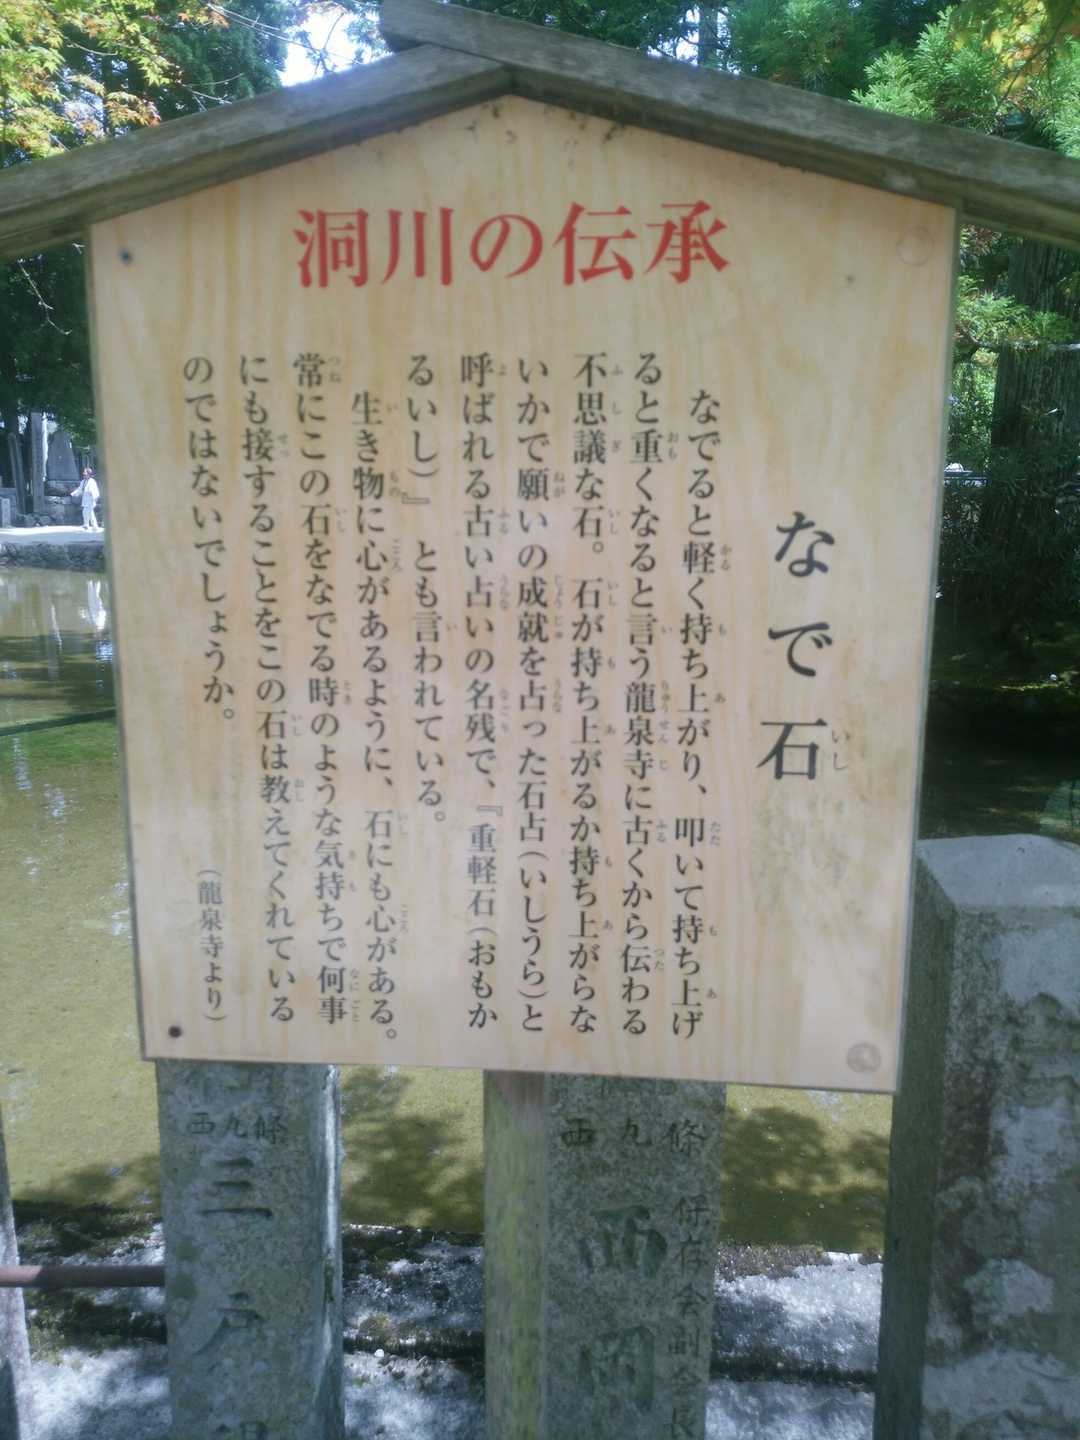 洞川の伝承
なで石
なでると軽く持ち上がり、叩いて持ち上げ
ると重くなると言う龍泉寺に古くから伝わる
不思議な石。石が持ち上がるか持ち上がらな
いかで願いの成就を占った石占(いしうら)と
呼ばれる古い占いの名残で、『重軽石(おもか
るいし)』とも言われている。
生き物に心があるように、石にも心がある。
常にこの石をなでる時のような気持ちで何事
にも接することをこの石は教えてくれている
のではないでしょうか。
(龍泉寺より)
西九條
三
西九條
保存会副会長
西岡